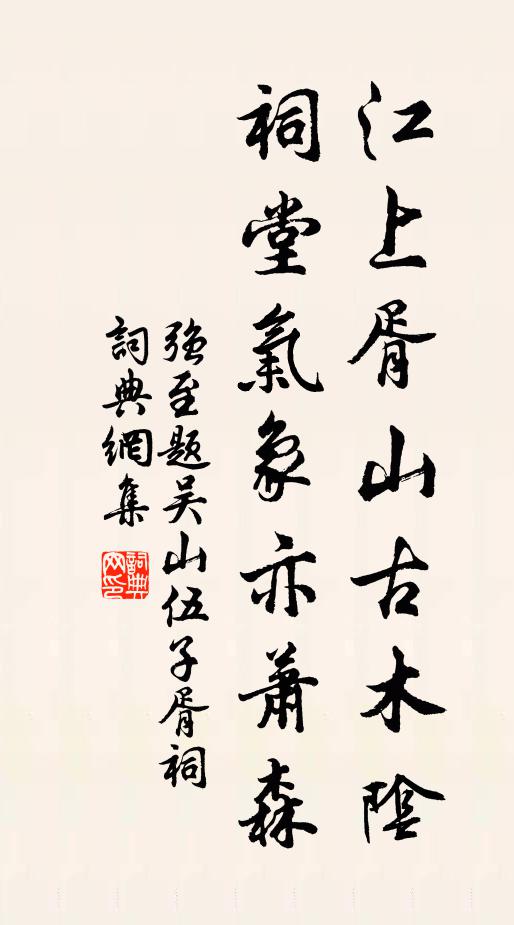 江上胥山古木陰
祠堂氣象亦蕭森
強至题吴山伍子胥祠
詞典網集
詞典
网印